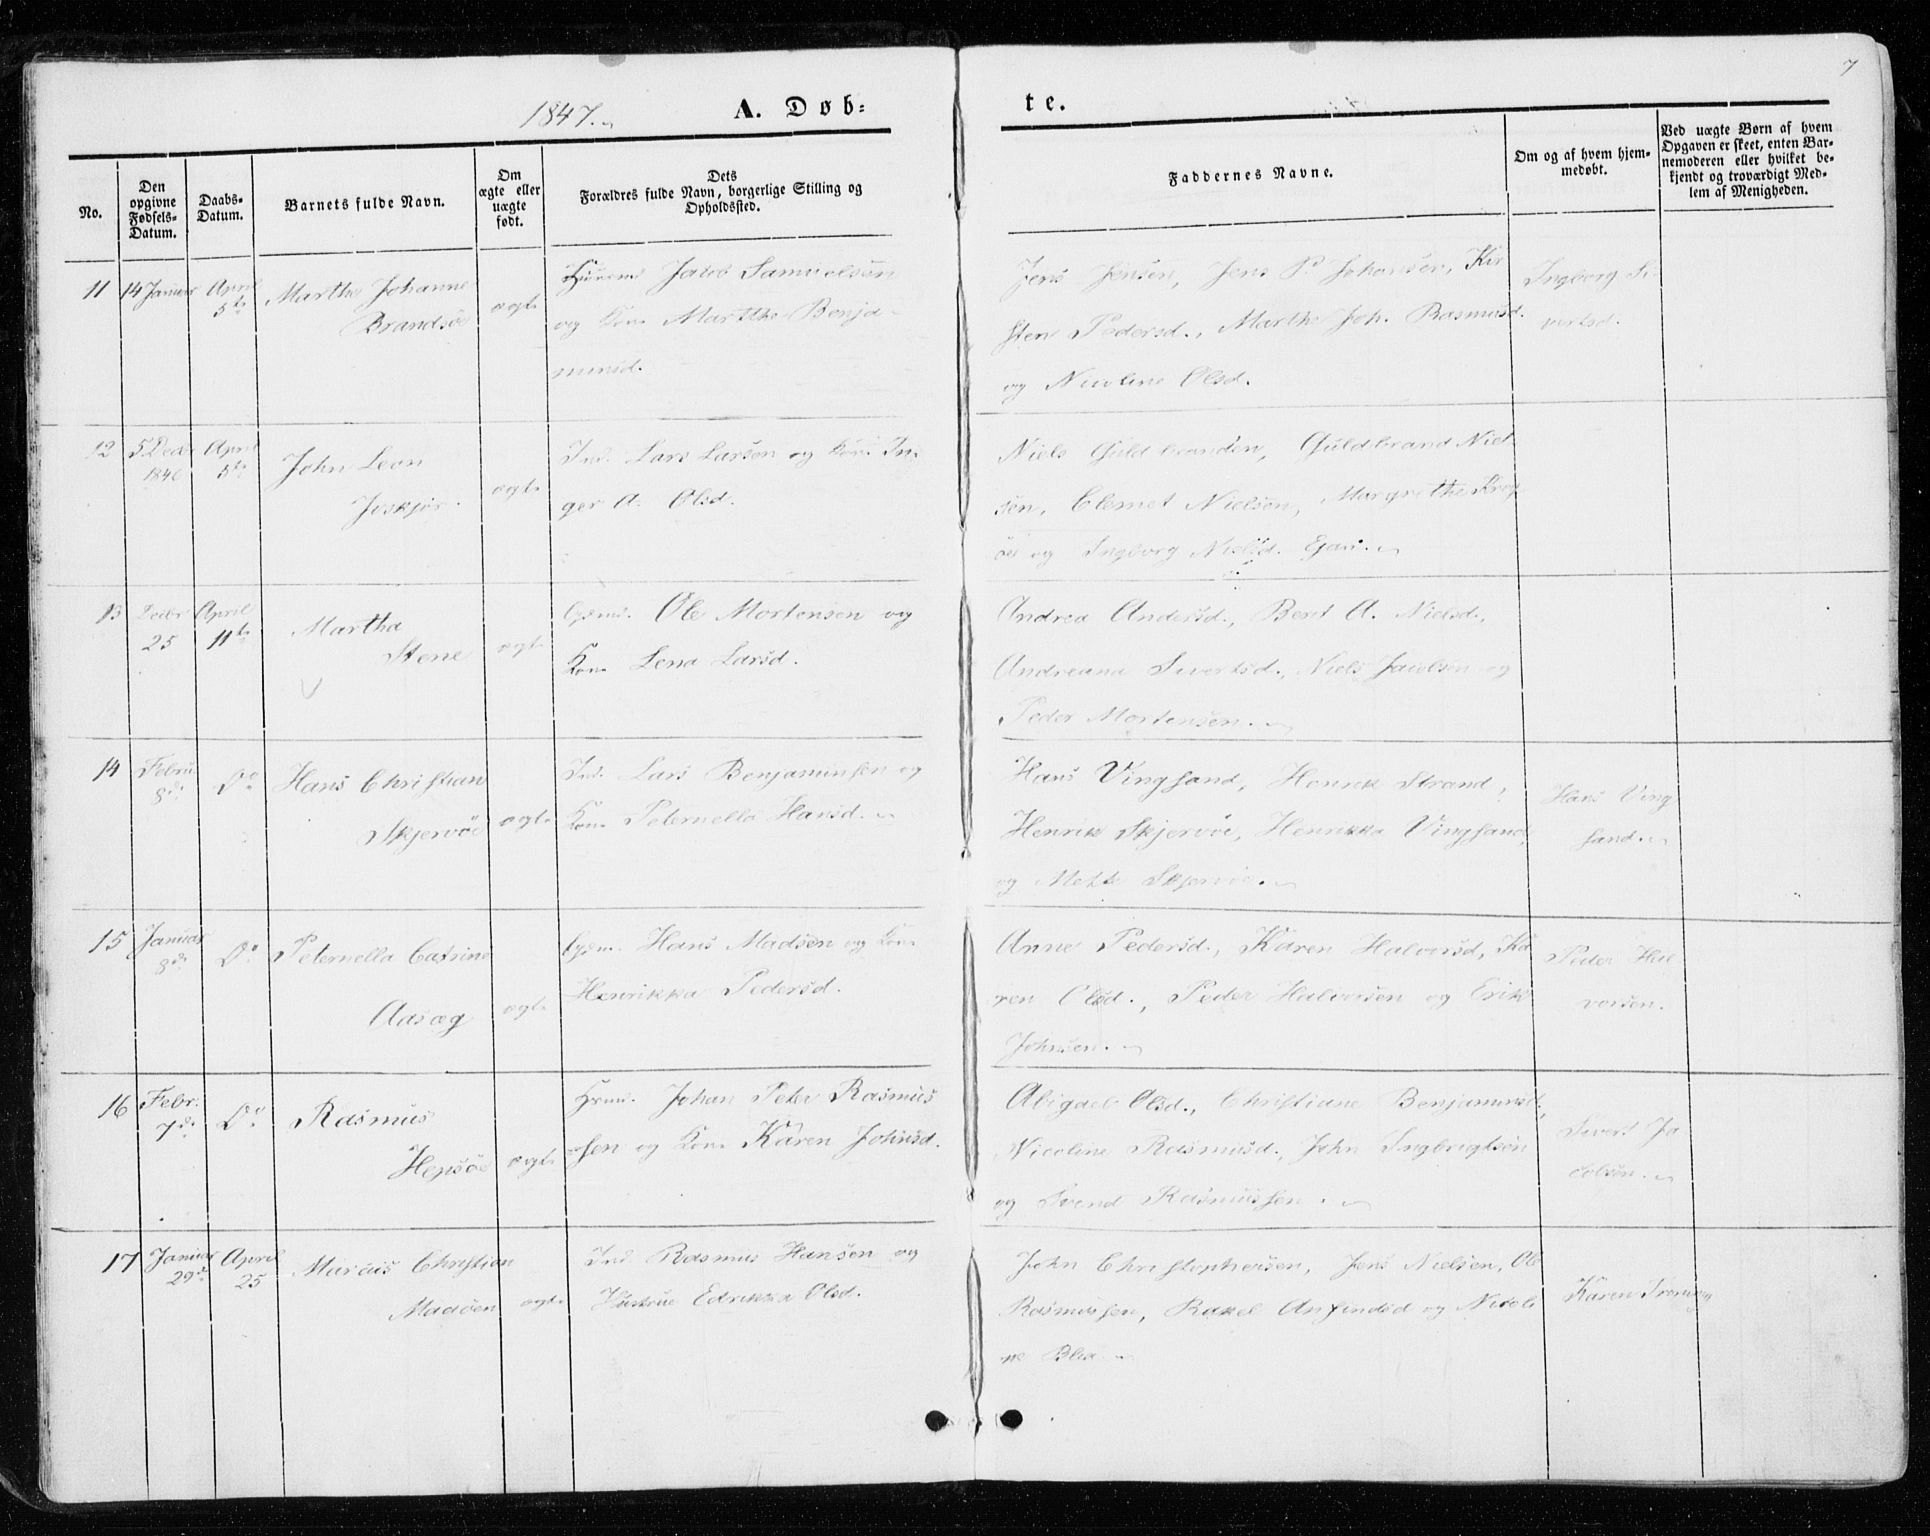 7
1847.
A. Døb-
te.
No.
Den opgivne Fødsels-Datum.
Daabs-Datum.
Barnets fulde Navn.
Om ægte eller uægte født.
Dets Forældres fulde Navn, borgerlige Stilling og Opholdssted.
Faddernes Navne.
Om og af hvem hjemmedøbt.
Ved uægte Børn af hvem Opgaven er skeet, enten Barnemoderen eller hvilket bekjendt og troværdigt Medlem af Menigheden.
11 14 Januar April 5te Marthe Johanne Brandsöe ægte
Huusmd. Jacob Samuelsen
og Kone Marthe Benja-
minsd.
Jens Jensen, Jens P. Johansen, Kir
sten Pedersd., Marthe Joh. Rasmusd.
og Nicoline Olsd.
Ingborg Si
vertsd.
12 5 Decbr 1846 April 5te John Leon ægte
Ind. Lars Larsen og Kone In-
ger A. Olsd.
Niels Guldbrandsen, Guldbrand Niel
sen, Clemet Nielsen, Margrethe
og Ingborg Nielsd.
13 Decbr 25 April 11te Martha Stene ægt.
Ole Mortensen og
Kone Lena Larsd.
Andrea Andersd., Berit A. Nielsd.,
Andreana Sivertsd., Niels Jacobsen og
Peder Mortensen.
14 Febru. 8de Do Hans Christian Skjervöe ægte
Ind. Lars Benjaminsen og
Kone Peternella Hansd.
Hans Vingsand, Henrik Strand,
Henrik Skjervöe, Henrikka Vingsand,
og Mette Skjervöe.
Hans Ving
sand.
15 Januar 8de Do Peternella Catrine Aasæg ægte
Hans Madsen og Kone
Henrikka Pedersd.
Anne Pedersd., Karen Halvorsd., Ka
ren Olsd., Peder Halvorsen og Erik
Johnsen.
Peder Hal
vorsen.
16 Febr. 7de Do Rasmus Hepsöe ægte
Hrmd. Johan Peter Rasmus
sen og Kone Karen Johnsd.
Abigael Olsd., Christiane Benjaminsd.,
Nicoline Rasmusd., John Ingbrigtsen
og Svend Rasmussen.
Sivert Ja
cobsen.
17 Januar 29de April 25 Marcus Christian Madöen ægte
Ind. Rasmus Hansen og
Hustrue Edrikka Olsd.
John Christophersen, Jens Nielsen, Ole
Rasmussen, Rakel Anfindsd og Nicoli
ne
Karen